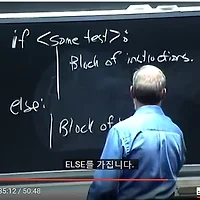 if <some test>:
Block of instructions.
else:
Block of
ELSE를 가집니다.
35:12 / 50:48